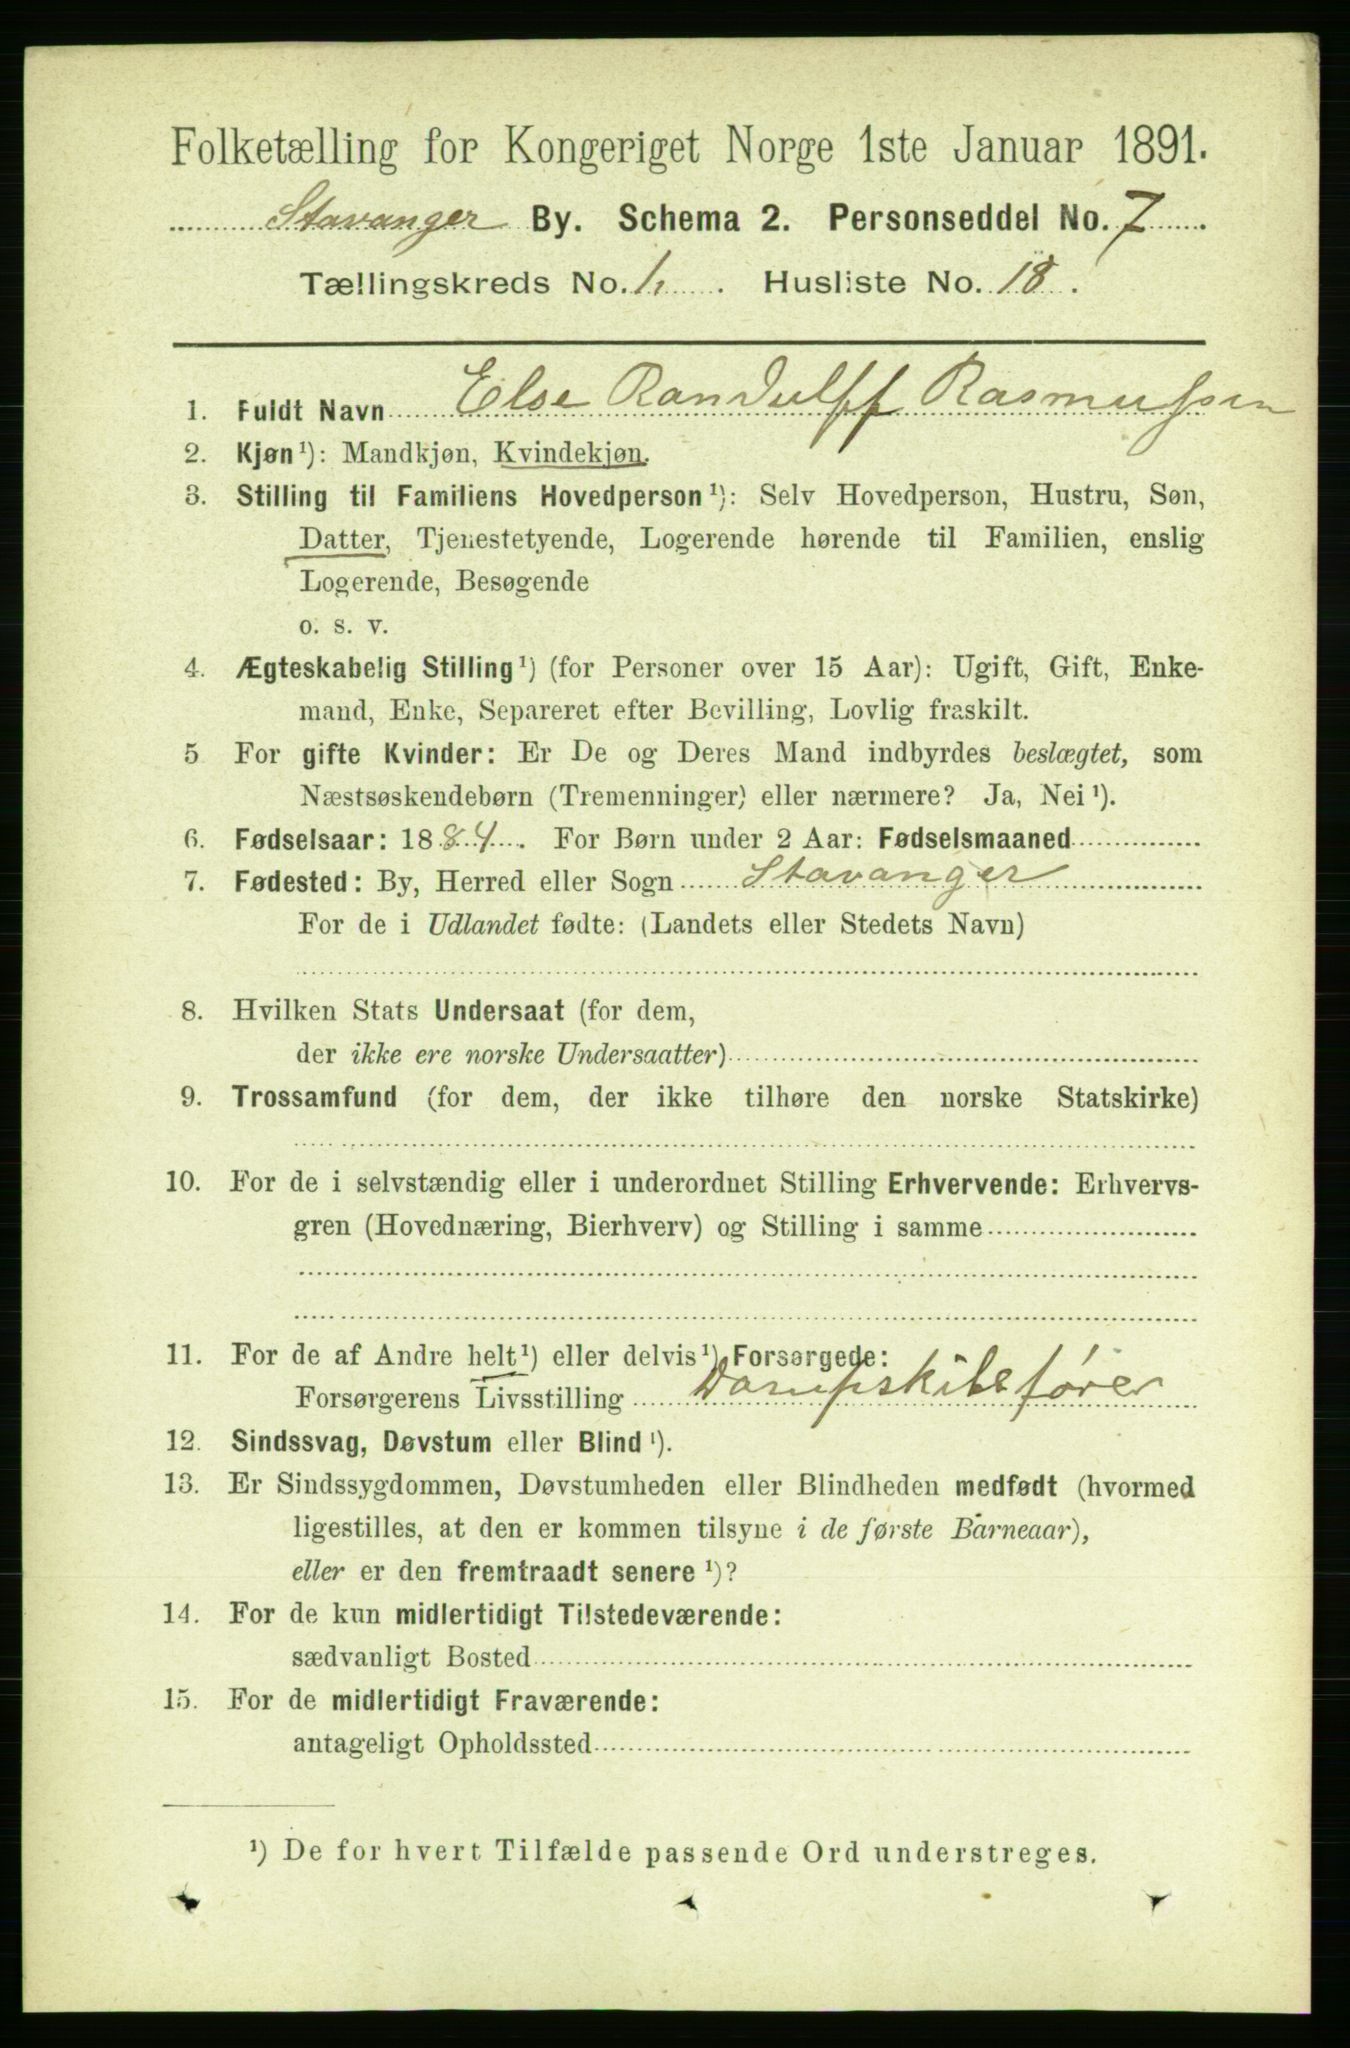 Folketælling for Kongeriget Norge 1ste Januar 1891.
Stavanger By. Schema 2. Personseddel No. 7
Tællingskreds No. 1. Husliste No. 18.
1. Fuldt Navn Else Randulff Rasmussen
2. Kjøn¹): Mandkjøn, Kvindekjøn.
3. Stilling til Familiens Hovedperson¹): Selv Hovedperson, Hustru, Søn,
Datter, Tjenestetyende, Logerende hørende til Familien, enslig
Logerende, Besøgende
o. s. v.
4. Ægteskabelig Stilling¹) (for Personer over 15 Aar): Ugift, Gift, Enke-
mand, Enke, Separeret efter Bevilling, Lovlig fraskilt.
5 For gifte Kvinder: Er De og Deres Mand indbyrdes beslægtet, som
Næstsøskendebørn (Tremenninger) eller nærmere? Ja, Nei¹).
6. Fødselsaar: 1884. For Børn under 2 Aar: Fødselsmaaned
7. Fødested: By, Herred eller Sogn Stavanger
For de i Udlandet fødte: (Landets eller Stedets Navn)
8. Hvilken Stats Undersaat (for dem,
der ikke ere norske Undersaatter)
9. Trossamfund (for dem, der ikke tilhøre den norske Statskirke)
10. For de i selvstændig eller i underordnet Stilling Erhvervende: Erhvervs-
gren (Hovednæring, Bierhverv) og Stilling i samme
11. For de af Andre helt¹) eller delvis¹) Forsørgede:
Forsørgerens Livsstilling Dampskibsfører
12. Sindssvag, Døvstum eller Blind¹).
13. Er Sindssygdommen, Døvstumheden eller Blindheden medfødt (hvormed
ligestilles, at den er kommen tilsyne i de første Barneaar),
eller er den fremtraadt senere¹)?
14. For de kun midlertidigt Tilstedeværende:
sædvanligt Bosted
15. For de midlertidigt Fraværende:
antageligt Opholdssted
¹) De for hvert Tilfælde passende Ord understreges.